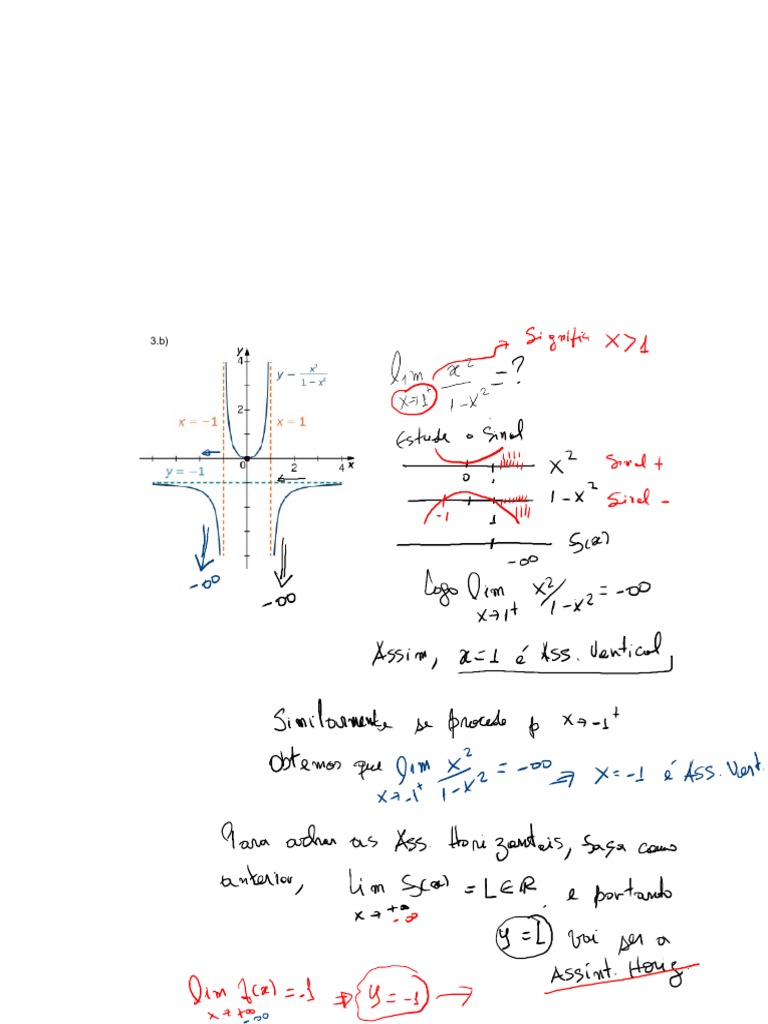 3.b)
y
4
y = x²/(1 − x²)
2
x = −1
x = 1
0
2
4
x
y = −1
-∞
-∞
Significa x>1
lim x→1⁺ x²/(1-x²) = ?
Estude o Sinal
0 1 x² Sinal +
-1 1 1-x² Sinal -
-∞ f(x)
Logo lim x→1⁺ x²/(1-x²) = -∞
Assim, x=1 é Ass. Vertical
Similarmente se procede p x→-1⁺
obtemos que lim x→-1⁺ x²/(1-x²) = -∞ ⇒ x=-1 é Ass. Vert.
Para achar as Ass. Horizontais, faça como
anterior, lim x→+∞ -∞ f(x) = L∈R e portando
y=L vai ser a
Assint. Horiz.
lim x→+∞ -∞ f(x) = -1 ⇒ y = -1 →